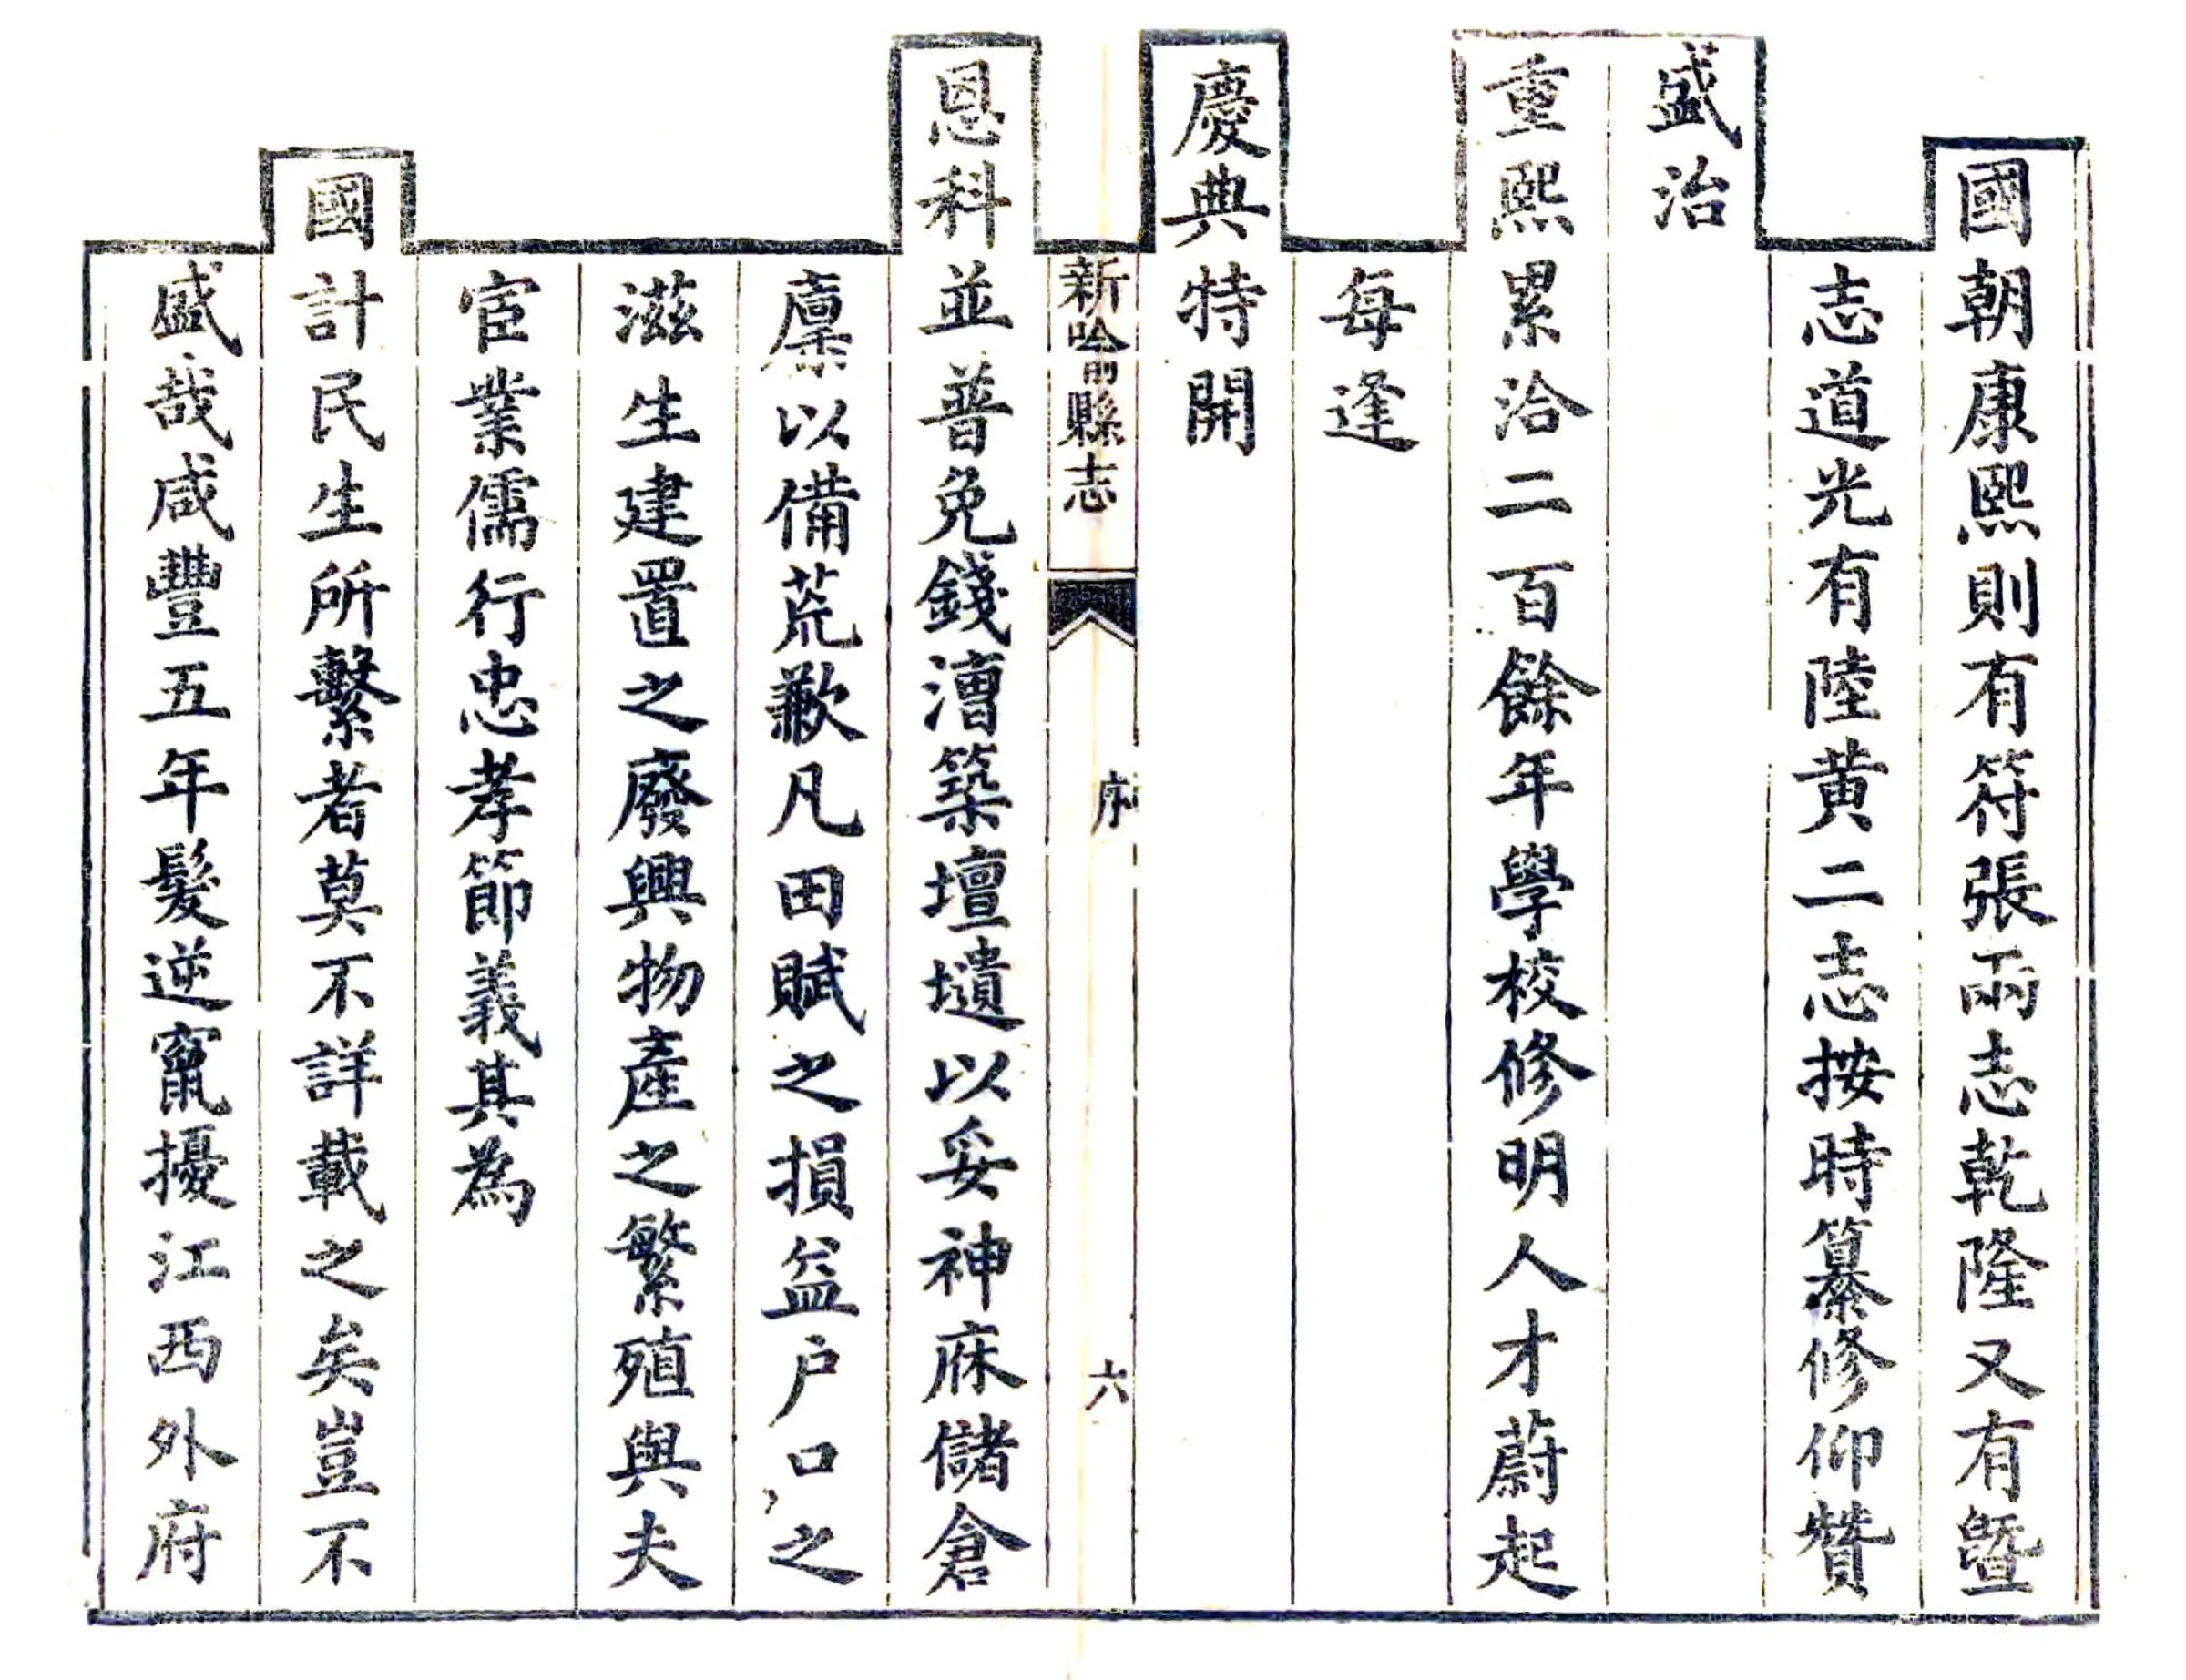 國朝康熙則有符張兩志乾隆又有暨
志道光有陸黃二志按時纂修仰贊
盛治
重熙累洽二百餘年學校修明人才蔚起
每逢
慶典特開
新喻縣志
序
六
恩科並普免錢漕築壇壝以妥神庥儲倉
廪以備荒歉凡田賦之損益户口之
滋生建置之廢興物產之繁殖與夫
宦業儒行忠孝節義其為
國計民生所繫者莫不詳載之矣豈不
盛哉咸豐五年髮逆竄擾江西外府